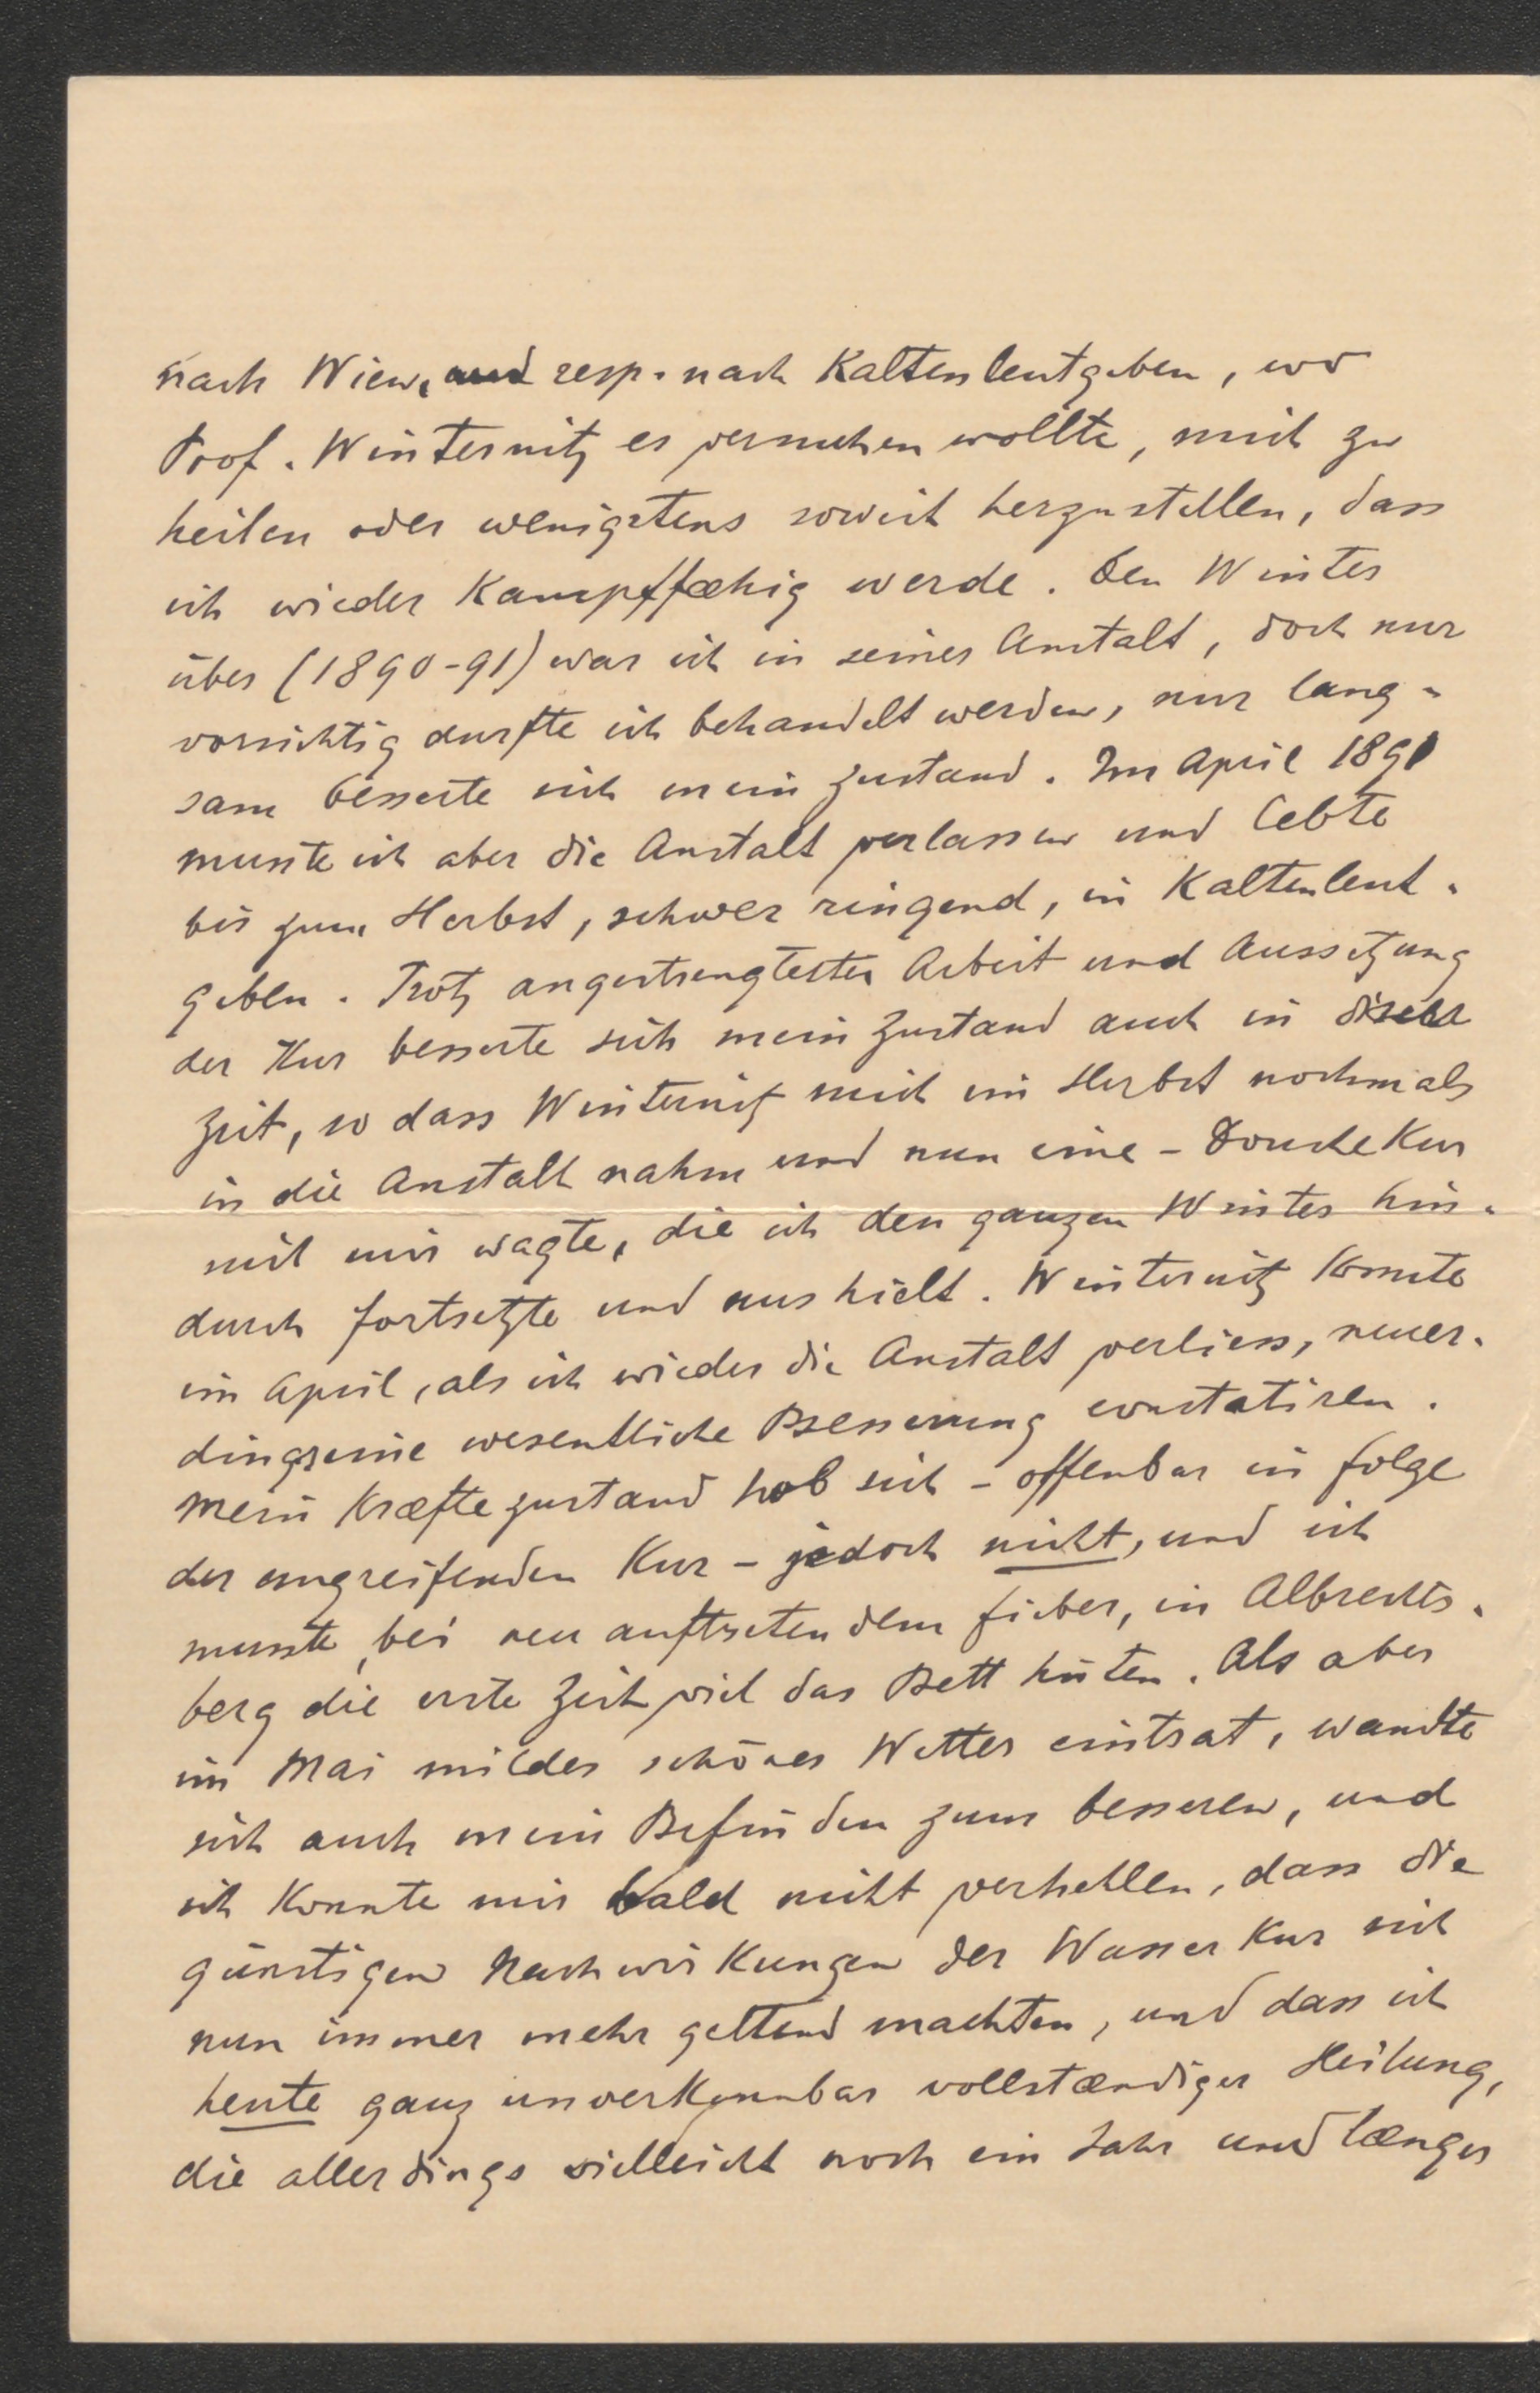 nach Wien, und resp. nach Kaltenleutgeben, wo
Prof. Winternitz es versuchen wollte, mich zu
heilen oder wenigstens soweit herzustellen, dass
ich wieder Kampffæhig werde. Den Winter
über (1890-91) war ich in seiner Anstalt, doch nur
vorsichtig durfte ich behandelt werden, nur lang-
sam besserte sich mein Zustand. Im April 1891
musste ich aber die Anstalt verlassen und lebte
bis zum Herbst, schwer ringend, in Kaltenleut-
geben. Trotz angestrengtester Arbeit und Aussetzung
der Kur besserte sich mein Zustand auch in dieser
Zeit, so dass Winternitz mich im Herbst nochmals
in die Anstalt nahm und nun eine - Douche Kur
mit mir wagte, die ich den ganzen Winter hin-
durch fortsetzte und aushielt. Winternitz Konnte
im April, als ich wieder die Anstalt verliess, neuer-
dings eine wesentliche Besserung constatiren.
Mein Kræftezustand hob sich - offenbar in folge
der eingreifenden Kur - jedoch nicht, und ich
musste, bei neu auftretendem fieber, in Albrechts-
berg die erste Zeit viel das Bett hüten. Als aber
im Mai mildes schönes Wetter eintrat, wandte
sich auch mein Befinden zum besseren, und
ich Konnte mir bald nicht verhehlen, dass die
günstigen Nachwirkungen der Wasser Kur sich
nun immer mehr geltend machten, und dass ich
heute ganz unverkennbar vollstændiger Heilung,
die allerdings vielleicht noch ein Jahr und længer